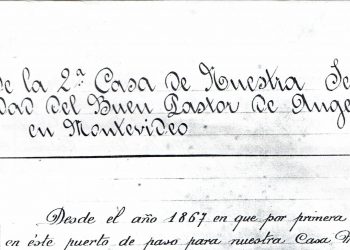 de la 2ª Casa de Nuestra Se
dad del Buen Pastor de Ange
en Montevideo
Desde el año 1867 en que por primera
en éste puerto de paso para nuestra Casa